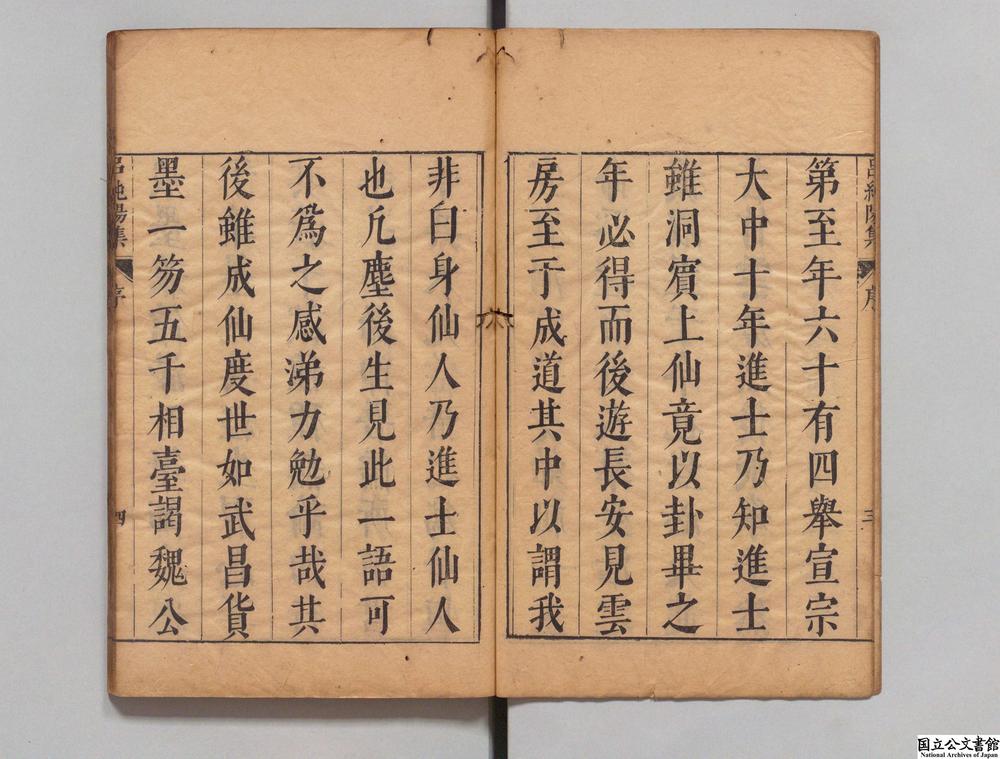 呂純陽集 序 三
第至年六十有四舉宣宗
大中十年進士乃知進士
雖洞賓上仙竟以卦畢之
年必得而後遊長安見雲
房至于成道其中以謂我
非白身仙人乃進士仙人
也凢塵後生見此一語可
不爲之感涕力勉乎哉其
後雖成仙度世如武昌貨
墨一笏五千相臺謁魏公
呂純陽集 序 四
国立公文書館
National Archives of Japan